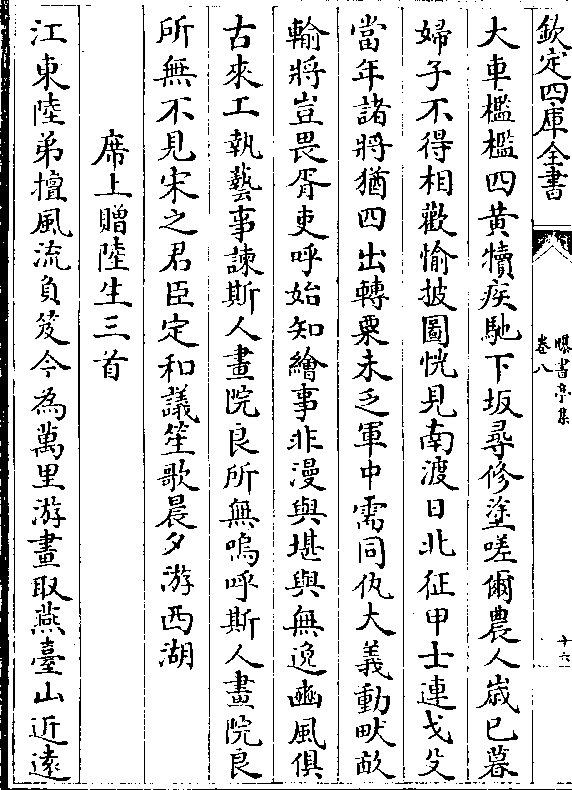 欽定四庫全書
曝書亭集
卷八
十六
大車檻檻四黄犢疾馳下坂尋修塗嗟爾農人嵗已暮
婦子不得相歡愉披圖恍見南渡日北征甲士連戈殳
當年諸將猶四出轉粟未乏軍中需同仇大義動畎畝
輸將豈畏胥吏呼始知繪事非漫與堪與無逸豳風俱
古來工執藝事諫斯人畫院良所無嗚呼斯人畫院良
所無不見宋之君臣定和議笙歌晨夕游西湖
席上贈陸生三首
江東陸弟擅風流負笈今為萬里游畫取燕臺山近遠